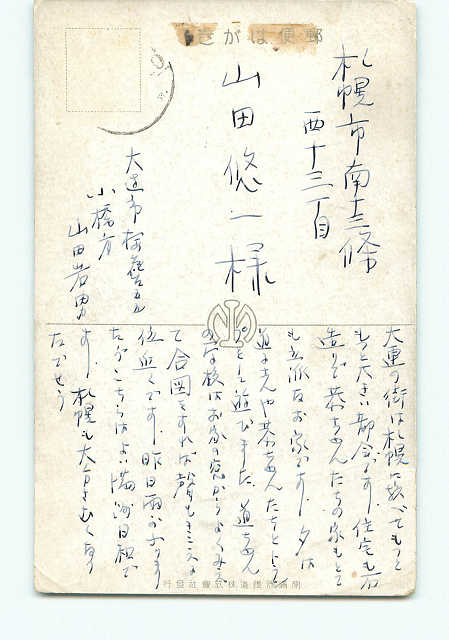 郵便はがき
札幌市南十三條
西十三丁目
山田悠一様
大連市桜花台
小橋方
山田岩男
大連の街は札幌に比べてもつと
もつと大きい都会です 住宅も石
造りで恭ちやんたちの家もとて
も立派なお家です 夕は
道子さんや恭ちやんたちと
として遊びました 道ちやん
の学校はお家の窓からよくみえ
て合図をすれば聲もきこえる
位近くです 昨日雨がふりまし
たがこちらはよい満洲日和で
す 札幌も大分さむくなつ
たでせう
南満洲鉄道株式會社發行